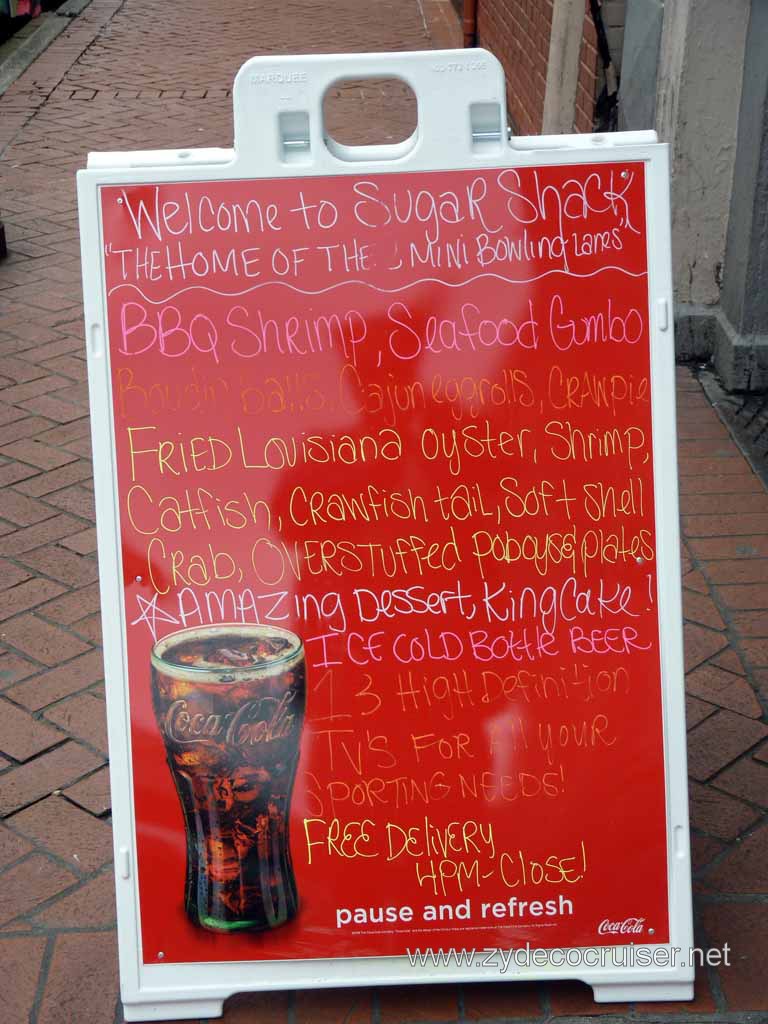 MARQUEE
Welcome to Sugar Shack
"THE HOME OF THE MINI Bowling Lanes"
BBQ Shrimp, Seafood Gumbo
Boudin balls, Cajun eggrolls, CRAWPIE
FRIED Louisiana oyster, Shrimp,
Catfish, CRAWfish tail, Soft shell
Crab, OVERSTuffed poboys & plates
AMAZing Dessert, King Cake!
ICE COLD Bottle BEER
13 High Definition
TV'S FOR All yOUR
SPORTING NEEDS!
Coca-Cola
FREE Delivery
4PM-Close!
pause and refresh
Coca-Cola
www.zydecocruiser.net